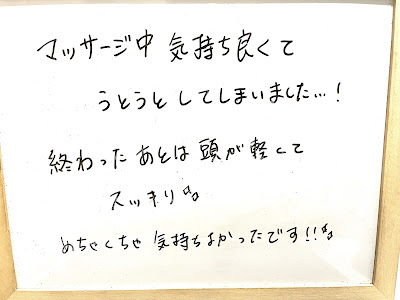 マッサージ中 気持ち良くて
うとうとしてしまいました…!
終わったあとは頭が軽くて
スッキリ
めちゃくちゃ 気持ちよかったです!!